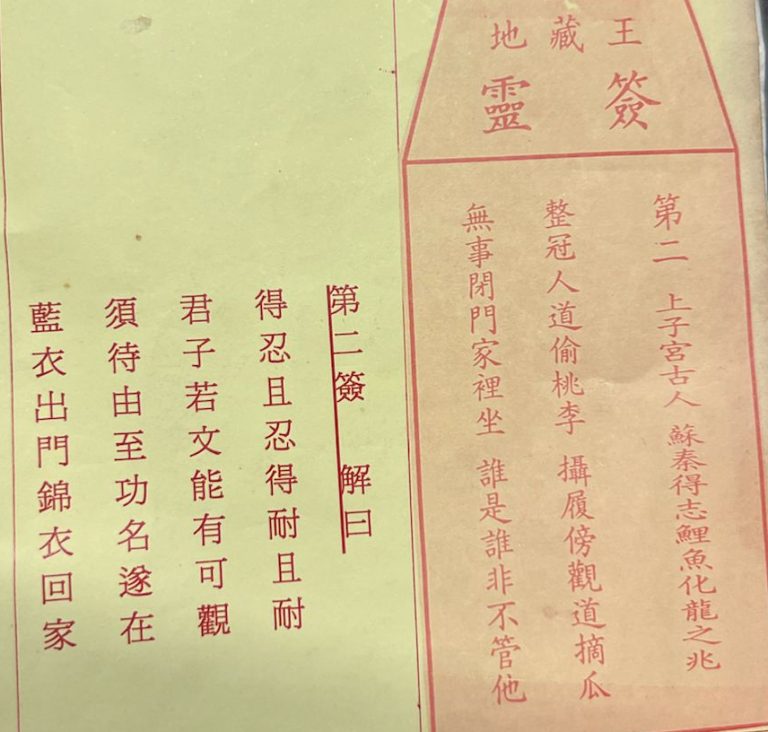 地藏王
靈簽
第二 上子宮古人 蘇秦得志鯉魚化龍之兆
整冠人道偷桃李 攝履傍觀道摘瓜
無事閉門家裡坐 誰是誰非不管他
第二簽 解曰
得忍且忍得耐且耐
君子若文能有可觀
須待由至功名遂在
藍衣出門錦衣回家